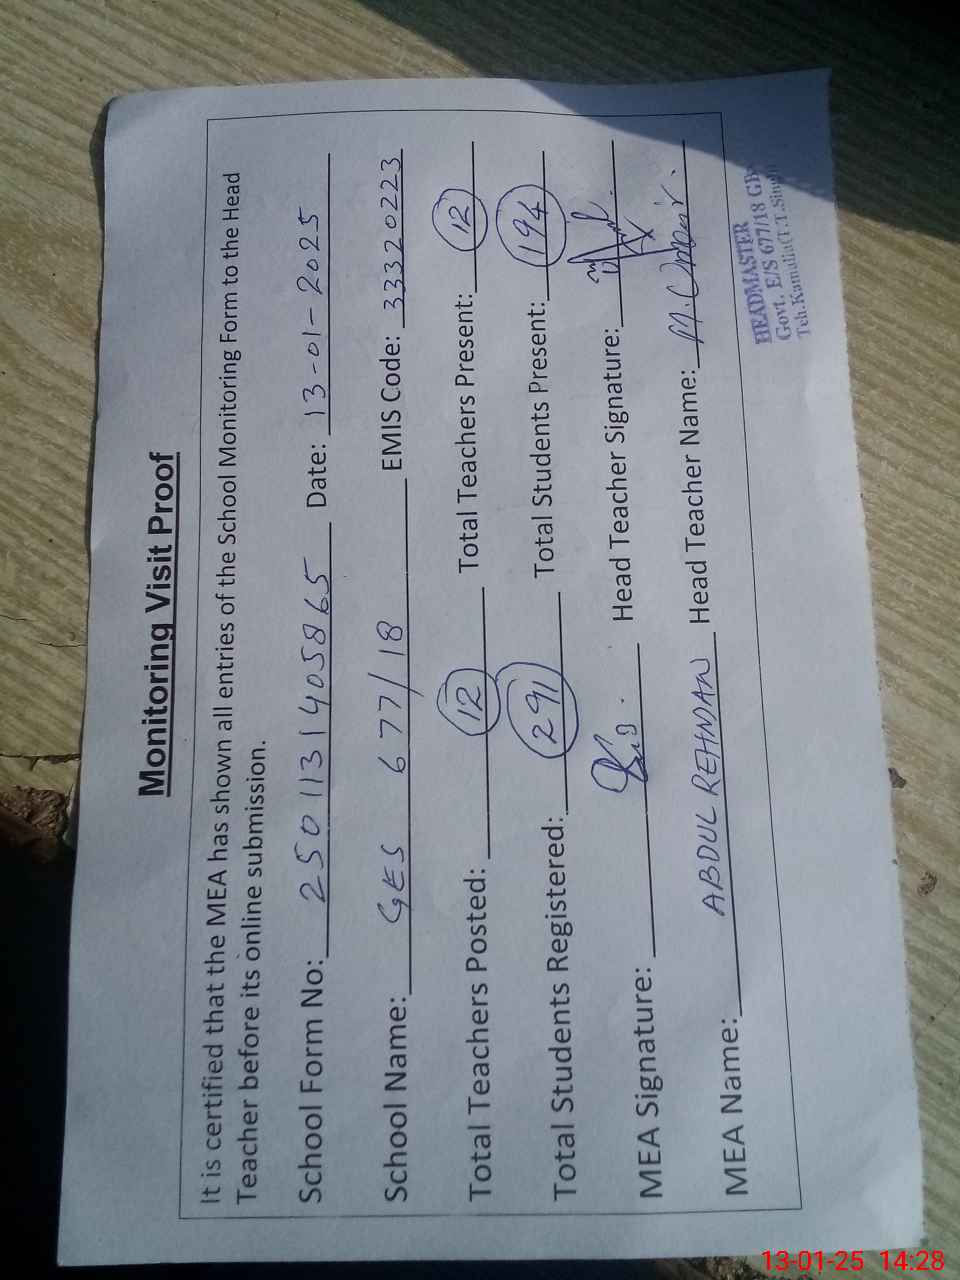 Monitoring Visit Proof
It is certified that the MEA has shown all entries of the School Monitoring Form to the Head
Teacher before its online submission.
School Form No: 2501131405865 Date: 13-01-2025
School Name: GES 677/18 EMIS Code: 33320223
Total Teachers Posted: 12 Total Teachers Present: 12
Total Students Registered: 291 Total Students Present: 194
MEA Signature: Head Teacher Signature:
MEA Name: ABDUL REHMAN Head Teacher Name: M.
HEADMASTER
Govt. E/S 677/18 GB
Teh.Kamalia(T.T.Singh)
13-01-25 14:28